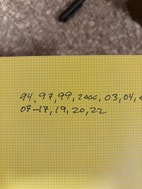 94, 97, 99, 2000, 03, 04,
07-17, 19, 20, 22